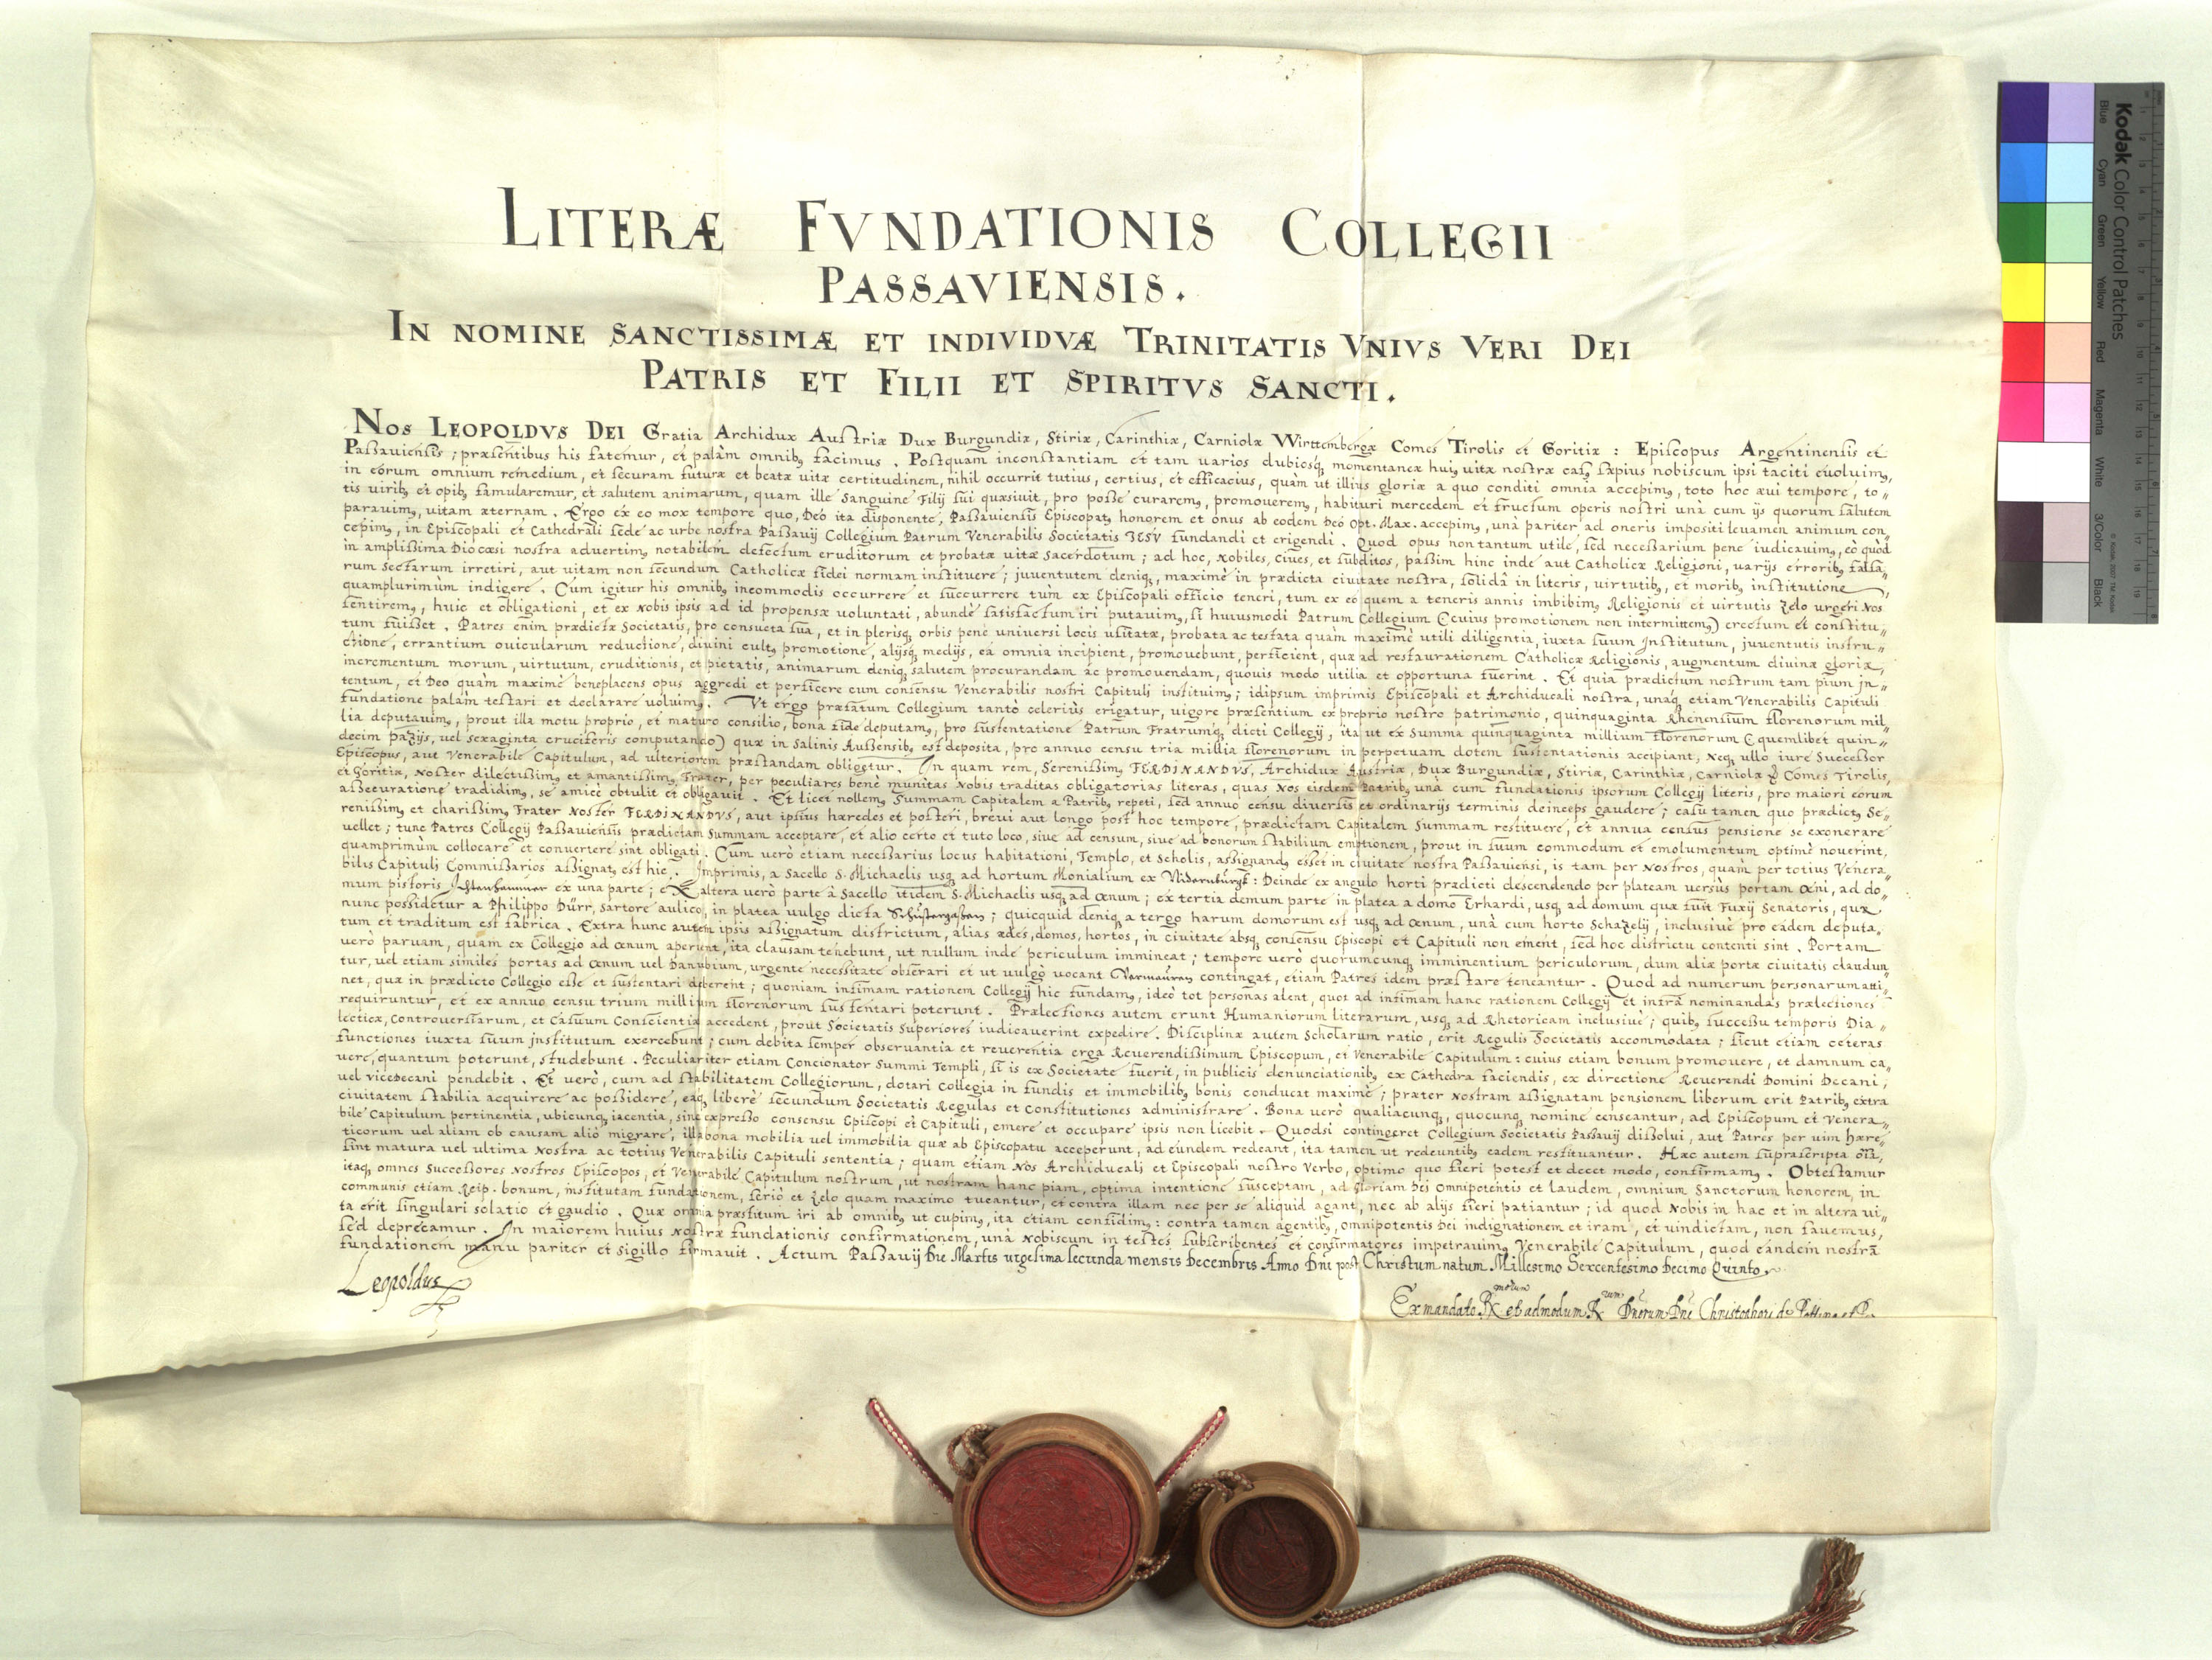 LITERÆ FVNDATIONIS COLLEGII
PASSAVIENSIS.
IN NOMINE SANCTISSIMÆ ET INDIVIDVÆ TRINITATIS VNIVS VERI DEI
PATRIS ET FILII ET SPIRITVS SANCTI.
NOS LEOPOLDVS DEI Gratia Archidux Austriæ Dux Burgundiæ, Stiriæ, Carinthiæ, Carniolæ Wirttembergæ Comes Tirolis et Goritiæ: Episcopus Argentinensis et
Passauiensis; præsentibus his fatemur, et palàm omnibꝫ facimus. Postquam inconstantiam et tam varios dubiosqꝫ momentaneæ huiꝰ uitæ nostræ casꝰ sæpius nobiscum ipsi taciti euoluimꝰ,
in eorum omnium remedium, et securam futuræ et beatæ uitæ certitudinem, nihil occurrit tutius, certius, et efficacius, quam ut illius gloriæ a quo conditi omnia accepimꝰ, toto hoc æui tempore, to„
tis viribꝫ et opibꝫ famularemur, et salutem animarum, quam ille Sanguine Filij sui quæsiuit, pro posse curaremꝰ, promoueremꝰ, habituri mercedem et fructum operis nostri unà cum ijs quorum salutem
parauimꝰ, uitam æternam. Ergo ex eo mox tempore quo, Deo ita disponente, Passauiensis Episcopatꝰ honorem et onus ab eodem Deo Opt. Max. accepimꝰ, unà pariter ad oneris impositi leuamen animum con„
cepimꝰ, in Episcopali et Cathedrali sede ac urbe nostra Passauij Collegium Patrum Venerabilis Societatis IESV fundandi et erigendi. Quod opus non tantum utile, sed necessarium pene iudicauimꝰ, eò quòd
in amplissima Diœcesi nostra advertimꝰ notabilem defectum eruditorum et probatæ uitæ Sacerdotum; ad hoc, Nobiles, Ciues, et subditos, passim hinc inde aut Catholicæ Religioni, uarijs erroribꝫ falsa„
rum Sectarum irretiri, aut uitam non secundum Catholicæ fidei normam instituere; juuentutem deniqꝫ, maximè in prædicta ciuitate nostra, solidâ in literis, virtutibꝫ, et moribꝫ institutione
quamplurimùm indigere. Cùm igitur his omnibꝫ incommodis occurrere et succurrere tùm ex Episcopali officio teneri, tum ex eo quem a teneris annis imbibimꝰ Religionis et virtutis zelo urgeri Nos
sentiremꝰ, huic et obligationi, et ex Nobis ipsis ad id propensæ uoluntati, abundè satisfactum iri putauimꝰ, si huiusmodi Patrum Collegium (cuius promotionem non intermittemꝰ) erectum et constitu„
tum fuisset. Patres enim prædictæ Societatis, pro consueta sua, et in plerisqꝫ orbis penè uniuersi locis usitata, probata ac testata quàm maximè utili diligentia, iuxta suum Institutum, juuentutis instru„
ctione, errantium ouicularum reductione, diuini cultꝰ promotione, alijsqꝫ medijs, ea omnia incipient, promouebunt, perficient, quæ ad restaurationem Catholicæ Religionis, augmentum diuinæ gloriæ,
incrementum morum, virtutum, eruditionis, et pietatis, animarum deniqꝫ salutem procurandam ac promouendam, quouis modo utilia et opportuna fuerint. Et quia prædictum nostrum tam pium in„
tentum, et Deo quàm maximè beneplacens opus aggredi et perficere cum consensu Venerabilis nostri Capituli instituimꝰ; idipsum imprimis Episcopali et Archiducali nostra, unaqꝫ etiam Venerabilis Capituli
fundatione palàm testari et declarare uoluimꝰ. Vt ergo præfatum Collegium tantò celeriùs erigatur, uigore præsentium ex proprio nostro patrimonio, quinquaginta Rhenensium florenorum mil„
lia deputauimꝰ, prout illa motu proprio, et maturo consilio, bona fide deputamꝰ, pro sustentatione Patrum Fratrumqꝫ dicti Collegij, ita ut ex Summa quinquaginta millium florenorum (quemlibet quin„
decim pazijs, uel sexaginta cruciferis computando) quæ in Salinis Aussensibꝫ est deposita, pro annuo censu tria millia florenorum in perpetuam dotem sustentationis accipiant, Neqꝫ ullo iure Successor
Episcopus, aut Venerabile Capitulum, ad ulteriorem præstandam obligetur. In quam rem, Serenissimꝰ FERDINANDVS, Archidux Austriæ, Dux Burgundiæ, Stiriæ, Carinthiæ, Carniolæ Comes Tirolis,
et Goritiæ, Noster dilectissimꝰ et amantissimꝰ Frater, per peculiares benè munitas Nobis traditas obligatorias literas, quas Nos eisdem Patribꝫ una cum fundationis ipsorum Collegij literis, pro maiori eorum
assecuratione tradidimꝰ, se amicè obtulit et obligauit. Et licet nollemꝰ Summam Capitalem a Patribꝫ repeti, sed annuo censu diuersis et ordinarijs terminis deinceps gaudere; casu tamen quo prædictꝰ Se„
renissimꝰ et charissimꝰ Frater Noster FERDINANDVS, aut ipsius hæredes et posteri, breui aut longo post hoc tempore, prædictam Capitalem Summam restituere, et annua census pensione se exonerare
uellet; tunc Patres Collegij Passauiensis prædictam Summam acceptare, et alio certo et tuto loco, siue ad censum, siue ad bonorum stabilium emptionem, prout in suum commodum et emolumentum optimè nouerint,
quamprimùm collocare et conuertere sint obligati. Cùm uerò etiam necessarius locus habitationi, Templo, et Scholis, assignandꝰ esset in ciuitate nostra Passauiensi, is tam per Nostros, quàm per totius Venera„
bilis Capituli Commissarios assignatꝰ est hic. Imprimis, a Sacello S. Michaelis usqꝫ ad hortum Monialium ex Nidernburgk: Deinde ex angulo horti prædicti descendendo per plateam uersùs portam Œni, ad do„
mum pistoris ex una parte; Ex altera uerò parte à Sacello itidem S. Michaelis usqꝫ ad Œnum; ex tertia demum parte in platea a domo Erhardi, usqꝫ ad domum quæ fuit Fuxij Senatoris, quæ
nunc possidetur a Philippo Dürr, sartore aulico, in platea uulgo dicta Schustergassen; quicquid deniqꝫ a tergo harum domorum est usqꝫ ad Œnum, unà cum horto Schazelij, inclusiuè pro eadem deputa„
tum et traditum est fabrica. Extra hunc autem ipsis assignatum districtum, alias ædes, domos, hortos, in ciuitate absqꝫ consensu Episcopi et Capituli non ement, sed hoc districtu contenti sint. Portam
uerò paruam, quam ex Collegio ad Œnum aperient, ita clausam tenebunt, ut nullum inde periculum immineat; tempore uerò quorumcunqꝫ imminentium periculorum, dum aliæ portæ ciuitatis claudun„
tur, uel etiam similes portas ad Œnum uel Danubium, urgente necessitate obserari et ut uulgò uocant Vermauren contingat, etiam Patres idem præstare teneantur. Quod ad numerum personarum atti„
net, quæ in prædicto Collegio esse et sustentari deberent; quoniam infimam rationem Collegij hic fundamꝰ, ideò tot personas alent, quot ad infimam hanc rationem Collegij et infrà nominandas prælectiones
requiruntur, et ex annuo censu trium millium florenorum sustentari poterunt. Prælectiones autem erunt Humaniorum literarum, usqꝫ ad Rhetoricam inclusiuè; quibꝫ successu temporis Dia„
lecticæ, Controuersiarum, et Casuum Conscientiæ accedent, prout Societatis Superiores iudicauerint expedire. Disciplinæ autem Scholarum ratio, erit Regulis Societatis accommodata; sicut etiam ceteras
functiones iuxta suum Institutum exercebunt; cum debita semper obseruantia et reuerentia erga Reuerendissimum Episcopum, et Venerabile Capitulum: cuius etiam bonum promouere, et damnum ca„
uere, quantum poterunt, studebunt. Peculiariter etiam Concionator Summi Templi, si is ex Societate fuerit, in publicis denunciationibꝫ ex Cathedra faciendis, ex directione Reuerendi Domini Decani,
uel vicedecani pendebit. Et uerò, cum ad stabilitatem Collegiorum, dotari collegia in fundis et immobilibꝫ bonis conducat maximè; præter Nostram assignatam pensionem liberum erit Patribꝫ extra
ciuitatem stabilia acquirere ac possidere, eaqꝫ liberè secundum Societatis Regulas et Constitutiones administrare. Bona uerò qualiacunqꝫ, quocunqꝫ nomine censeantur, ad Episcopum et Venera„
bile Capitulum pertinentia, ubicunqꝫ iacentia, sine expresso consensu Episcopi et Capituli, emere et occupare ipsis non licebit. Quodsi contingeret Collegium Societatis Passauij dissolui, aut Patres per uim hære„
ticorum uel aliam ob causam aliò migrare, illa bona mobilia uel immobilia quæ ab Episcopatu acceperunt, ad eundem redeant, ita tamen ut redeuntibꝫ eadem restituantur. Hæc autem suprascripta oĩa,
sint matura uel ultima Nostra ac totius Venerabilis Capituli sententia; quam etiam Nos Archiducali et Episcopali nostro Verbo, optimo quo fieri potest et decet modo, confirmamꝰ. Obtestamur
itaqꝫ omnes Successores Nostros Episcopos, et Venerabile Capitulum nostrum, ut nostram hanc piam, optima intentione susceptam, ad gloriam Dei Omnipotentis et laudem, omnium Sanctorum honorem, in
communis etiam Reip. bonum, institutam fundationem, seriò et zelo quam maximo tueantur, et contra illam nec per se aliquid agant, nec ab alijs fieri patiantur; id quod Nobis in hac et in altera ui„
ta erit singulari solatio et gaudio. Quæ omnia præstitum iri ab omnibꝫ ut cupimꝰ, ita etiam confidimꝰ: contra tamen agentibꝫ, omnipotentis Dei indignationem et iram, et uindictam, non fauemus,
sed deprecamur. In maiorem huius Nostræ fundationis confirmationem, unà Nobiscum in testes subscribentes et confirmatores impetrauimꝰ Venerabile Capitulum, quod eandem nostrã
fundationem manu pariter et sigillo firmauit. Actum Passauij Die Martis uigesima secunda mensis Decembris Anno Dnĩ post Christum natum Millesimo Sexcentesimo Decimo Quinto.
Leopoldus
Ex mandato et admodum Dnorum Dni Christophori de
Kodak Color Control Patches
Blue Cyan Green Yellow Red Magenta White 3/Color Black